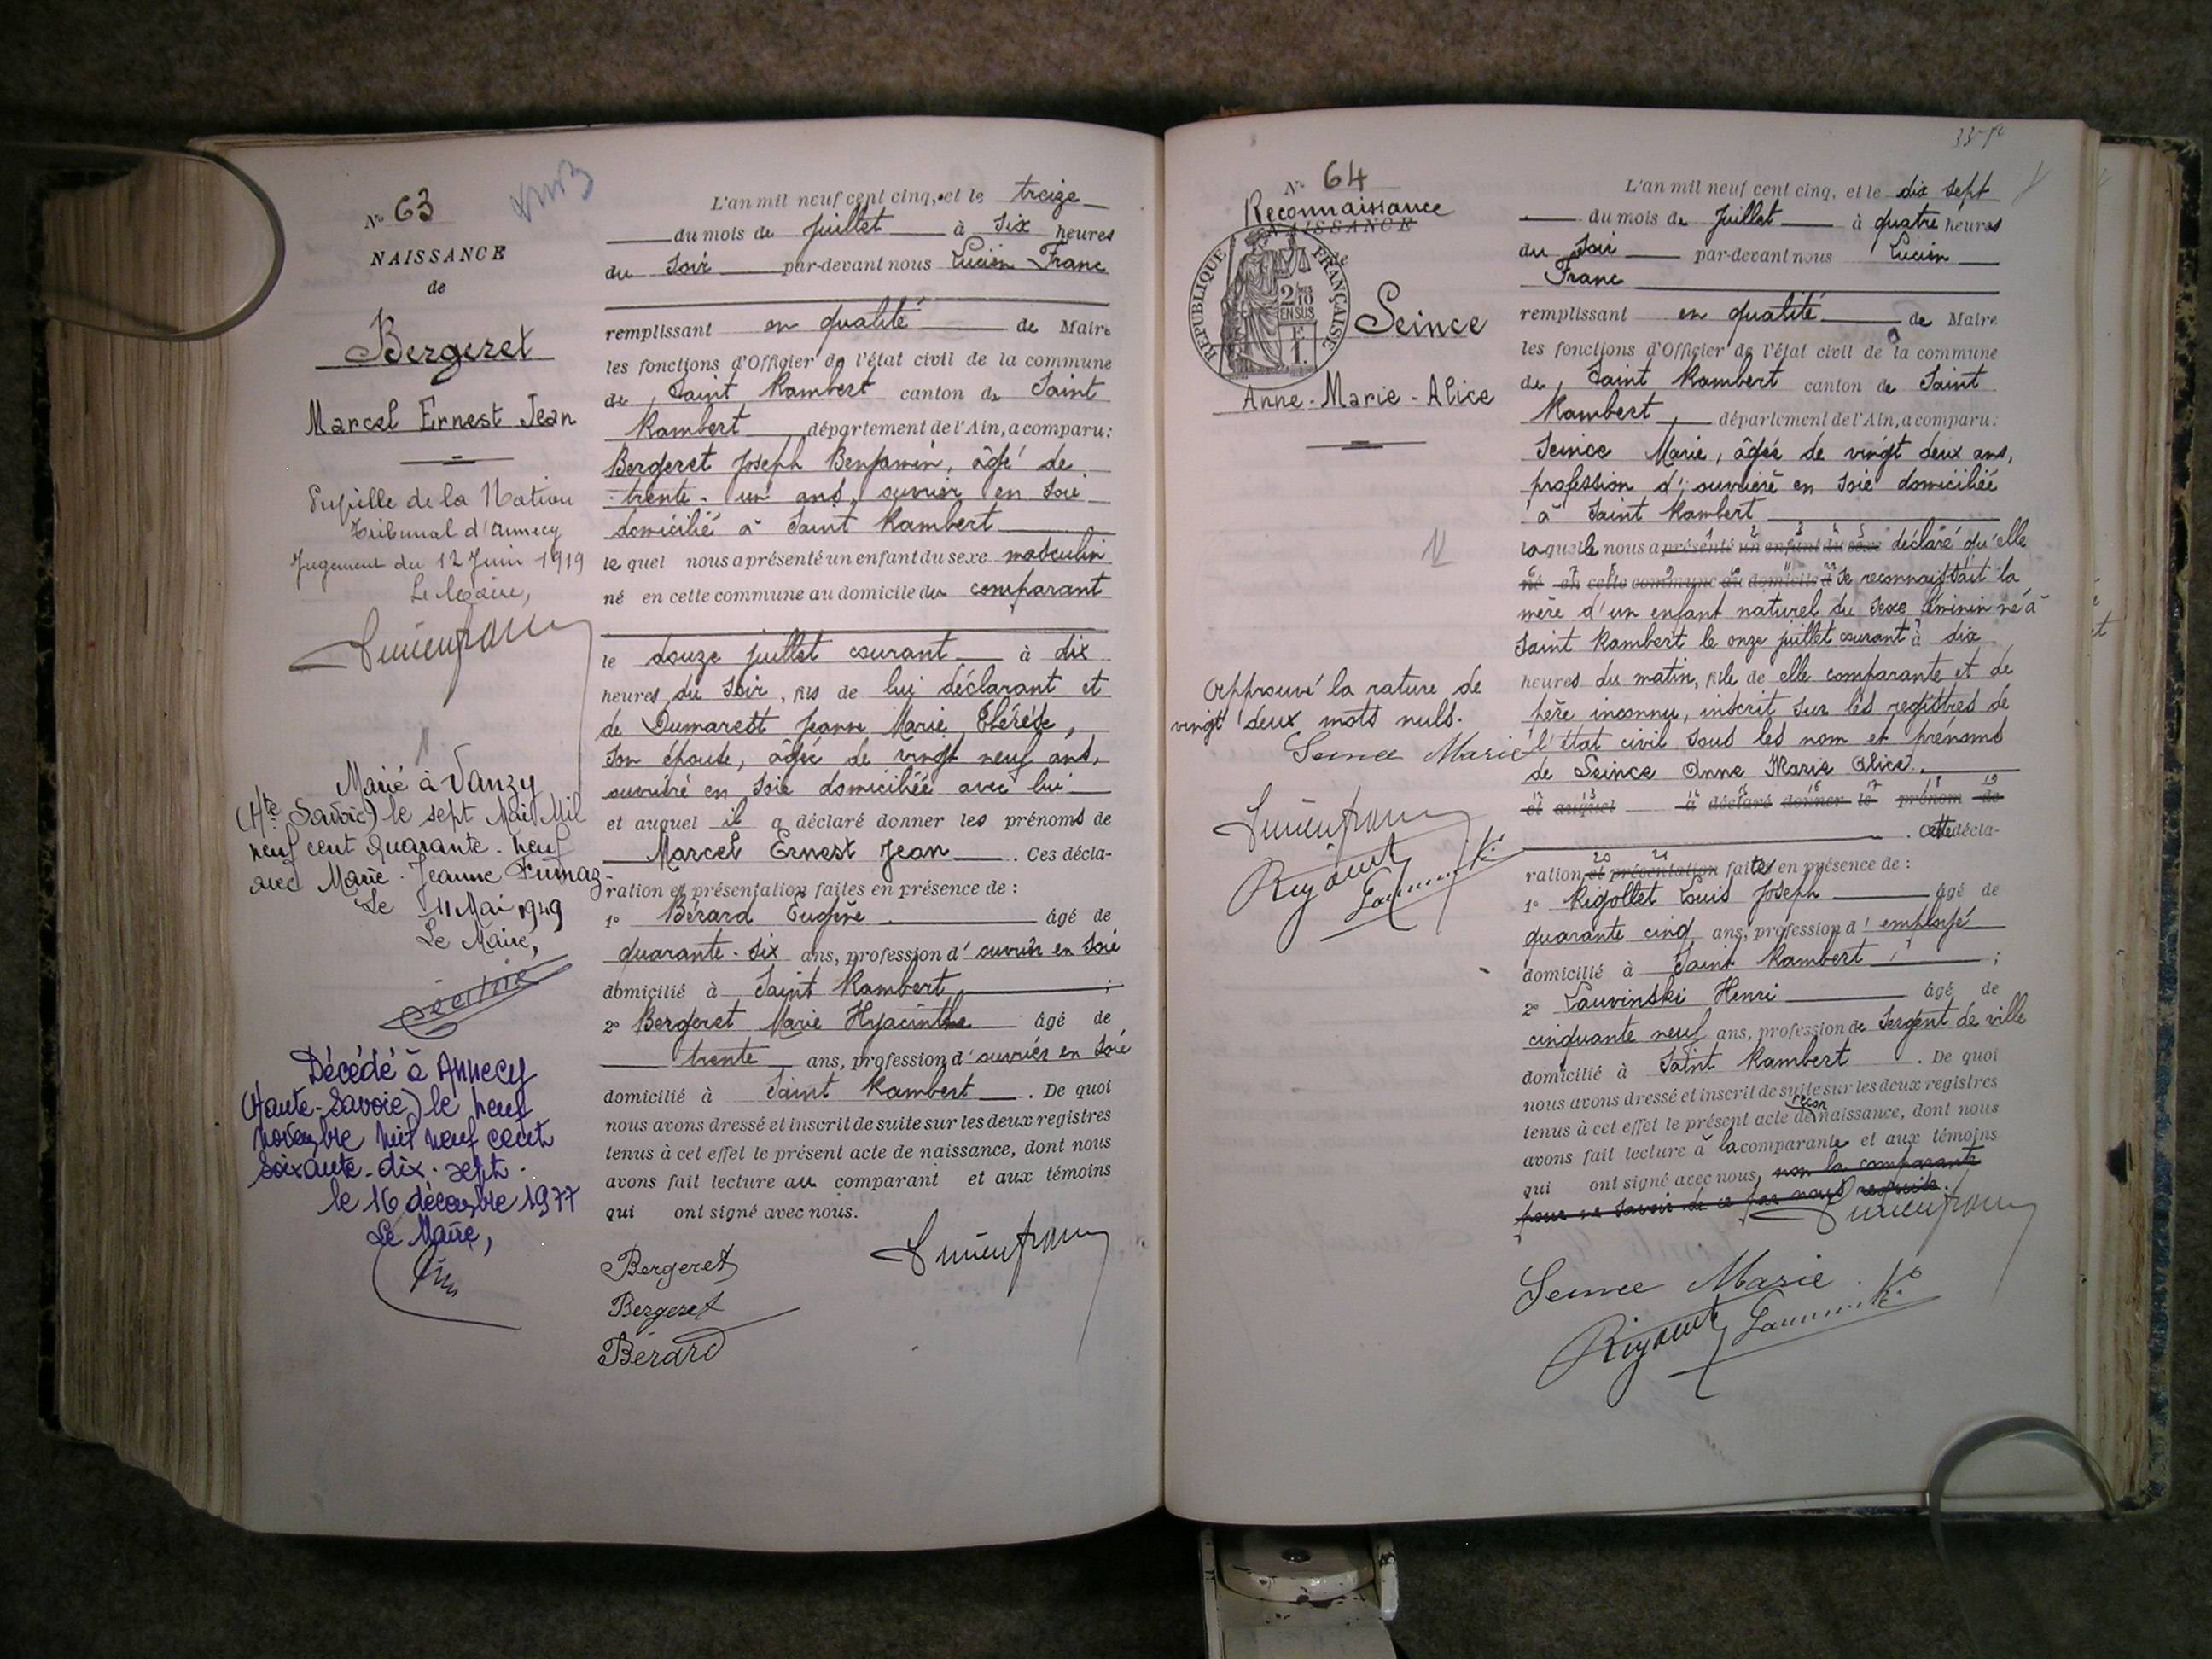 N° 63
NAISSANCE
de
Bergeret
Marcel Ernest Jean
Pupille de la Nation
Tribunal d'Annecy
Jugement du 12 Juin 1919
Le Maire,
Marié à Vanzy
(Hte Savoie) le sept Mai Mil
neuf cent quarante-neuf
avec Marie-Jeanne Fumaz
Le 11 Mai 1949
Le Maire,
Décédé à Annecy
(Haute-Savoie) le neuf
novembre mil neuf cent
soixante-dix-sept.
le 16 décembre 1977
Le Maire,
L'an mil neuf cent cinq, et le treize
du mois de Juillet à six heures
du soir par-devant nous Lucien Franc
remplissant en qualité de Maire
les fonctions d'Officier de l'état civil de la commune
de Saint Rambert canton de Saint
Rambert département de l'Ain, a comparu:
Bergeret Joseph Benjamin, âgé de
trente-un ans, ouvrier en soie
domicilié à Saint Rambert
le quel nous a présenté un enfant du sexe masculin
né en cette commune au domicile du comparant
le douze juillet courant à dix
heures du soir, fils de lui déclarant et
de Dumarest Jeanne Marie Thérèse,
son épouse, âgée de vingt neuf ans,
ouvrière en soie domiciliée avec lui
et auquel il a déclaré donner les prénoms de
Marcel Ernest Jean. Ces décla-
ration et présentation faites en présence de :
1° Bérard Eugène âgé de
quarante-six ans, profession d'ouvrier en soie
domicilié à Saint Rambert ;
2° Bergeret Marie Hyacinthe âgé de
trente ans, profession d'ouvrier en soie
domicilié à Saint Rambert. De quoi
nous avons dressé et inscrit de suite sur les deux registres
tenus à cet effet le présent acte de naissance, dont nous
avons fait lecture au comparant et aux témoins
qui ont signé avec nous.
Bergeret
Lucien Franc
Bergeret
Bérard
N° 64
Reconnaissance
NAISSANCE
de
REPUBLIQUE FRANÇAISE
2/10 EN SUS
Seince
Anne-Marie-Alice
Approuvé la rature de
vingt deux mots nuls.
Seince Marie
L'an mil neuf cent cinq, et le dix sept
du mois de Juillet à quatre heures
du soir par-devant nous Lucien
Franc
remplissant en qualité de Maire
les fonctions d'Officier de l'état civil de la commune
de Saint Rambert canton de Saint
Rambert département de l'Ain, a comparu:
Seince Marie, âgée de vingt deux ans,
profession d'ouvrière en soie domiciliée
à Saint Rambert
laquelle nous a présenté un enfant du sexe déclaré qu'elle
né en cette commune au domicile d se reconnaissait la
mère d'un enfant naturel du sexe féminin né à
Saint Rambert le onze juillet courant à dix
heures du matin, fille de elle comparante et de
père inconnu, inscrit sur les registres de
l'état civil sous les nom et prénoms
de Seince Anne Marie Alice.
et auquel a déclaré donner le prénom de
Cette décla-
ration et présentation faites en présence de :
1° Rigollet Louis Joseph âgé de
quarante cinq ans, profession d'employé
domicilié à Saint Rambert ;
2° Lauvinski Henri âgé de
cinquante neuf ans, profession de Sergent de ville
domicilié à Saint Rambert. De quoi
nous avons dressé et inscrit de suite sur les deux registres
tenus à cet effet le présent acte de reconnaissance, dont nous
avons fait lecture à la comparante et aux témoins
qui ont signé avec nous, non la comparante
pour ne savoir de ce par nous requise.
Lucien Franc
Seince Marie